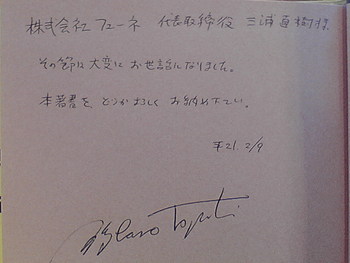 株式会社フューネ 代表取締役 三浦直樹様
その節は大変にお世話になりました。
本著書を どうかよろしく お納め下さい。
平21. 2/9